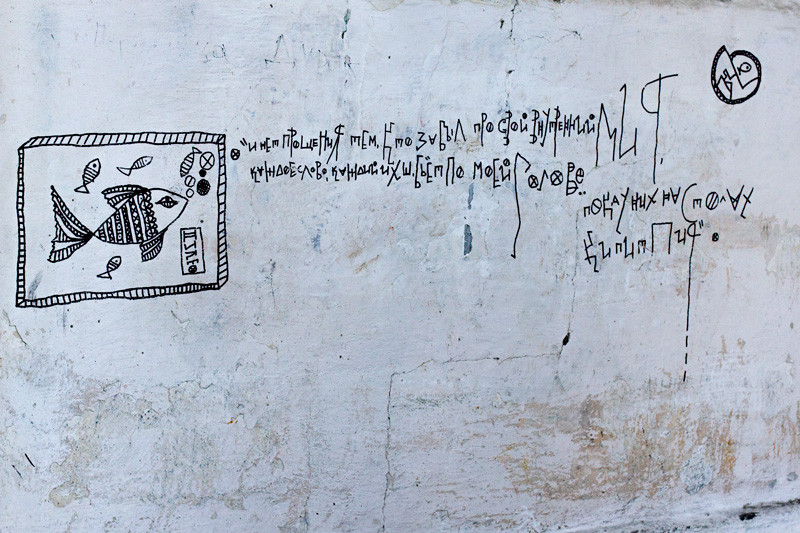 "И НЕТ ПРОЩЕНИЯ ТЕМ, КТО ЗАБЫЛ ПРО СВОЙ ВНУТРЕННИЙ МИР.
КАЖДОЕ СЛОВО, КАЖДЫЙ ИХ ШАГ, БЬЁТ ПО МОЕЙ ГОЛОВЕ..
ПОКА У НИХ НА СТОЛАХ
КИПИТ ПИР"